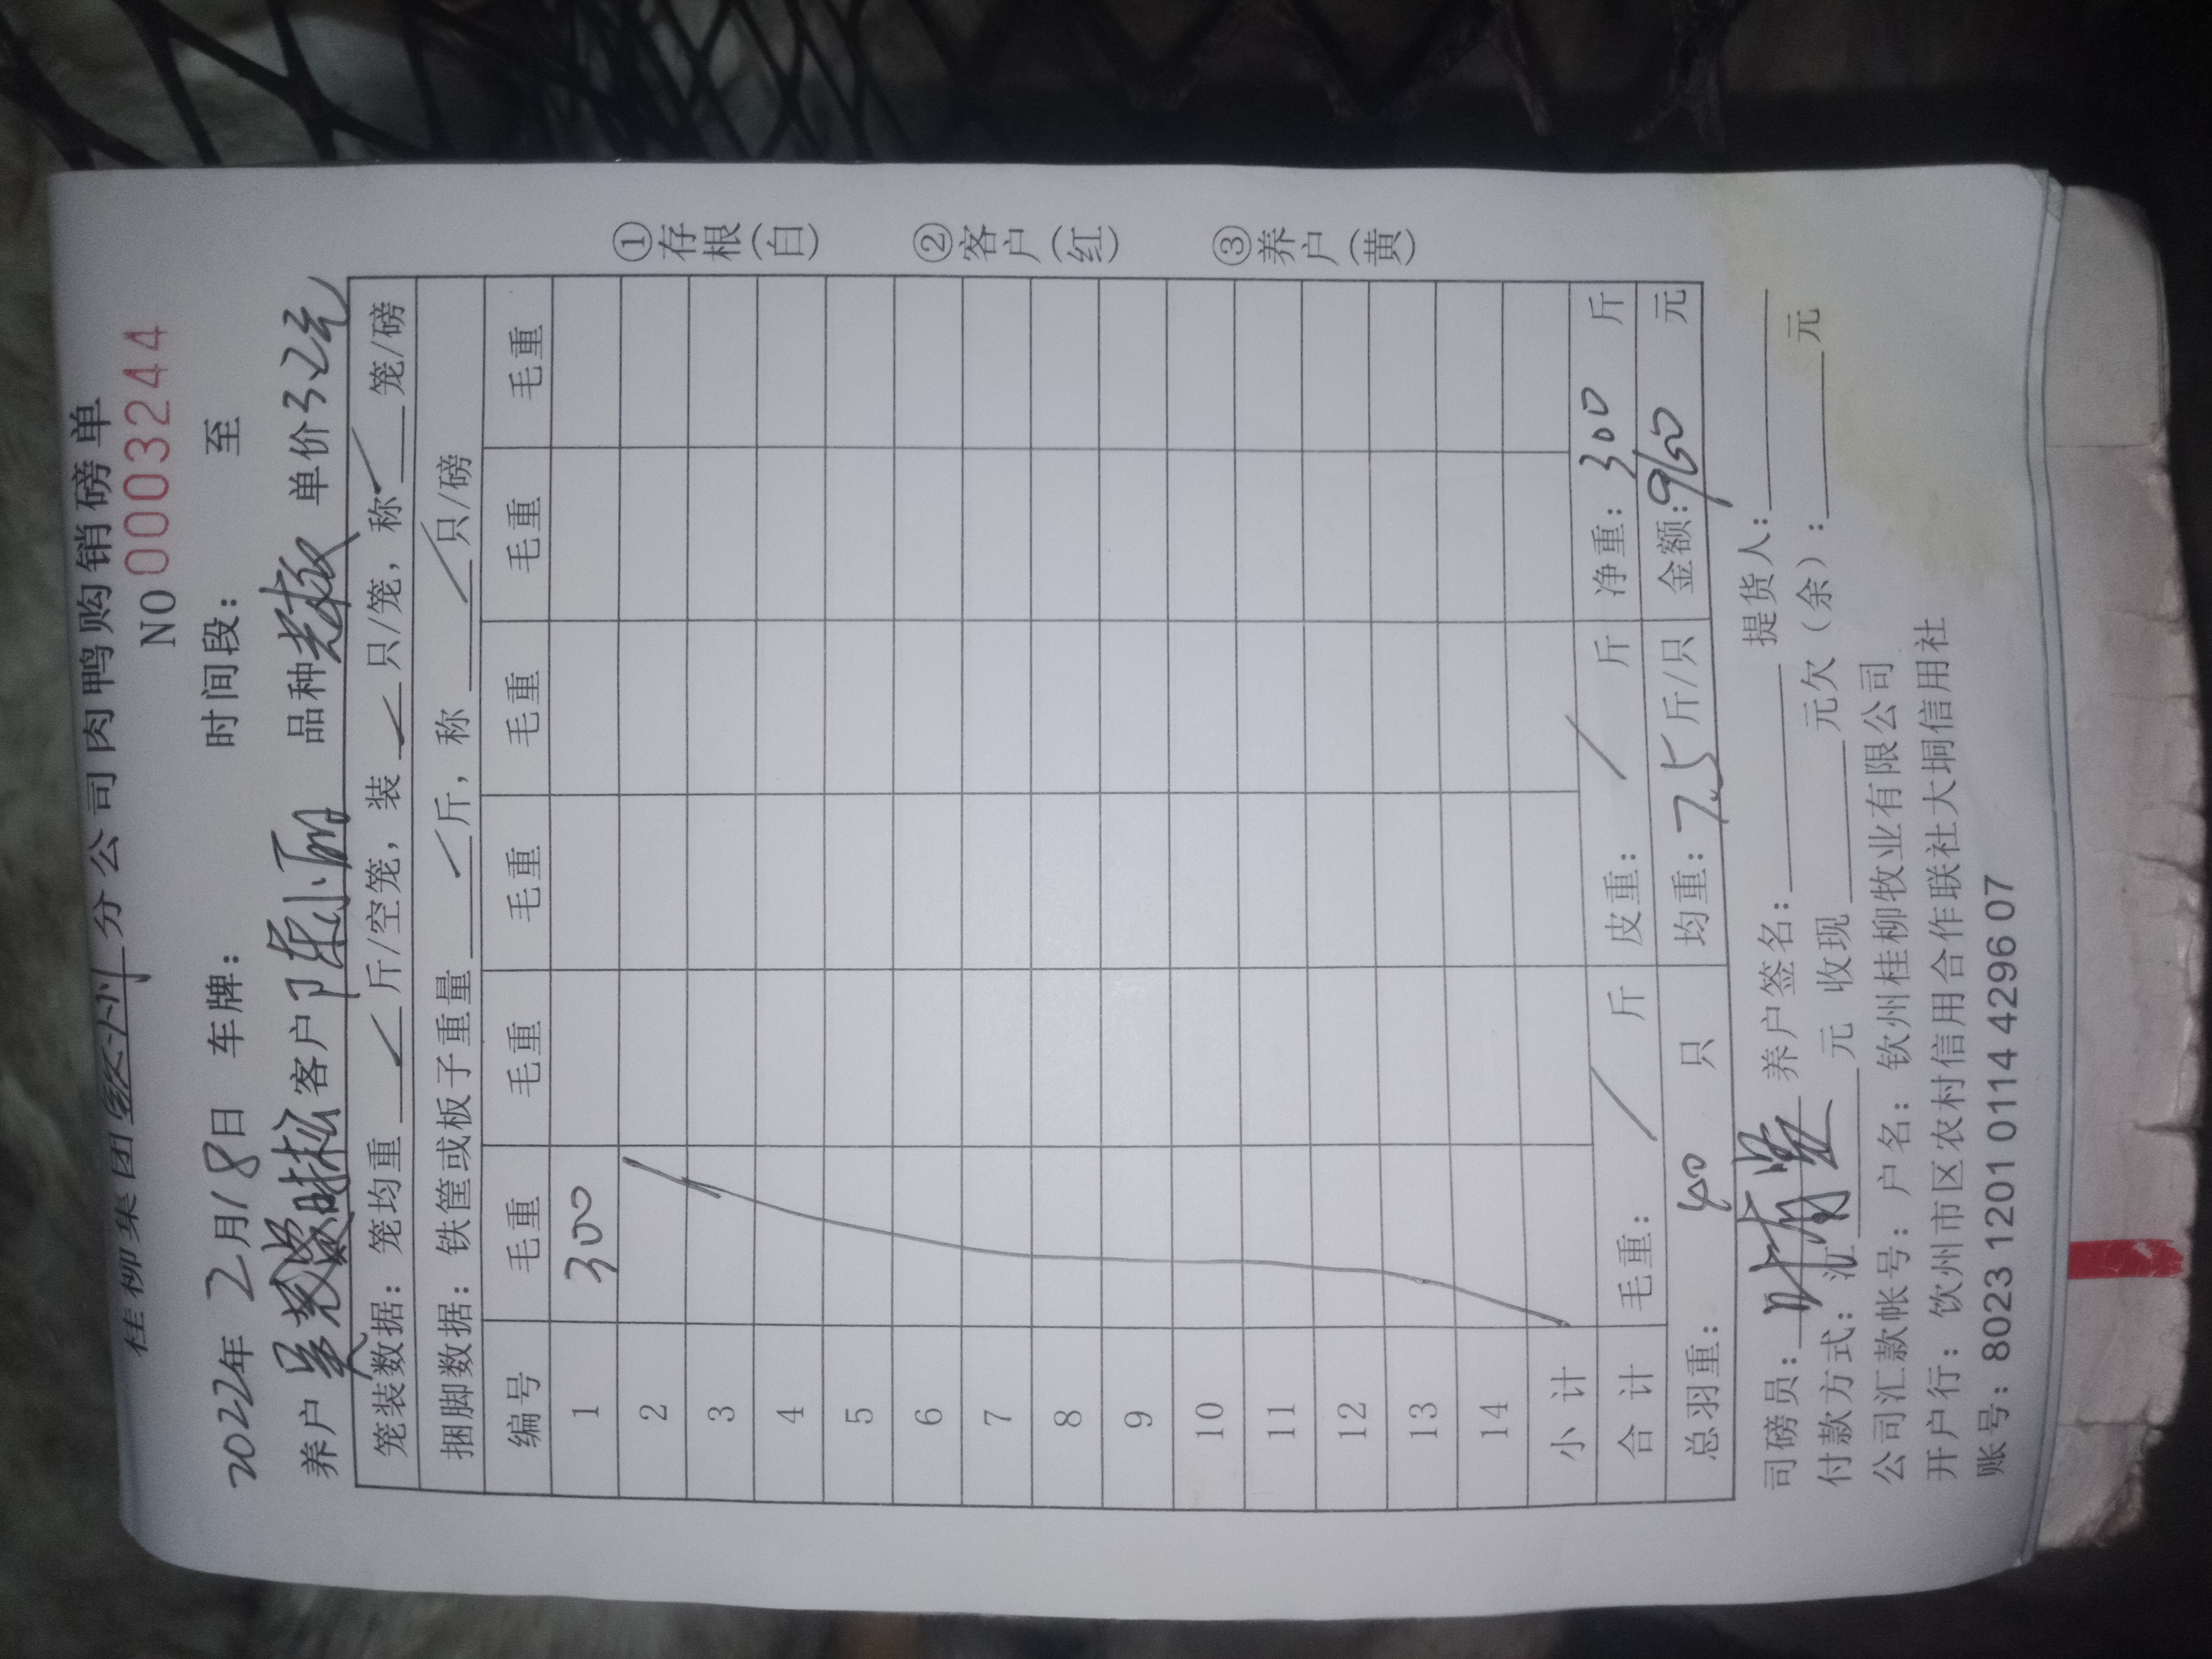 桂柳集团钦州分公司肉鸭购销磅单
NO 0003244
2022年 2月18日 车牌： 时间段： 至
养户 客户 陈小丽 品种 单价 3.2元
笼装数据：笼均重 斤/空笼，装 只/笼，称 笼/磅
捆脚数据：铁筐或板子重量 斤，称 只/磅
编号 毛重 毛重 毛重 毛重 毛重 毛重
1 300
2
3
4
5
6
7
8
9
10
11
12
13
14
小计
合计 毛重： / 斤 皮重： / 斤 净重：300 斤
总羽重： 40 只 均重：7.5 斤/只 金额：960 元
①存根(白) ②客户(红) ③养户(黄)
司磅员： 养户签名： 提货人：
付款方式：汇 元 收现 元欠（余）： 元
公司汇款帐号：户名：钦州桂柳牧业有限公司
开户行：钦州市区农村信用合作联社大垌信用社
账号：8023 1201 0114 4296 07